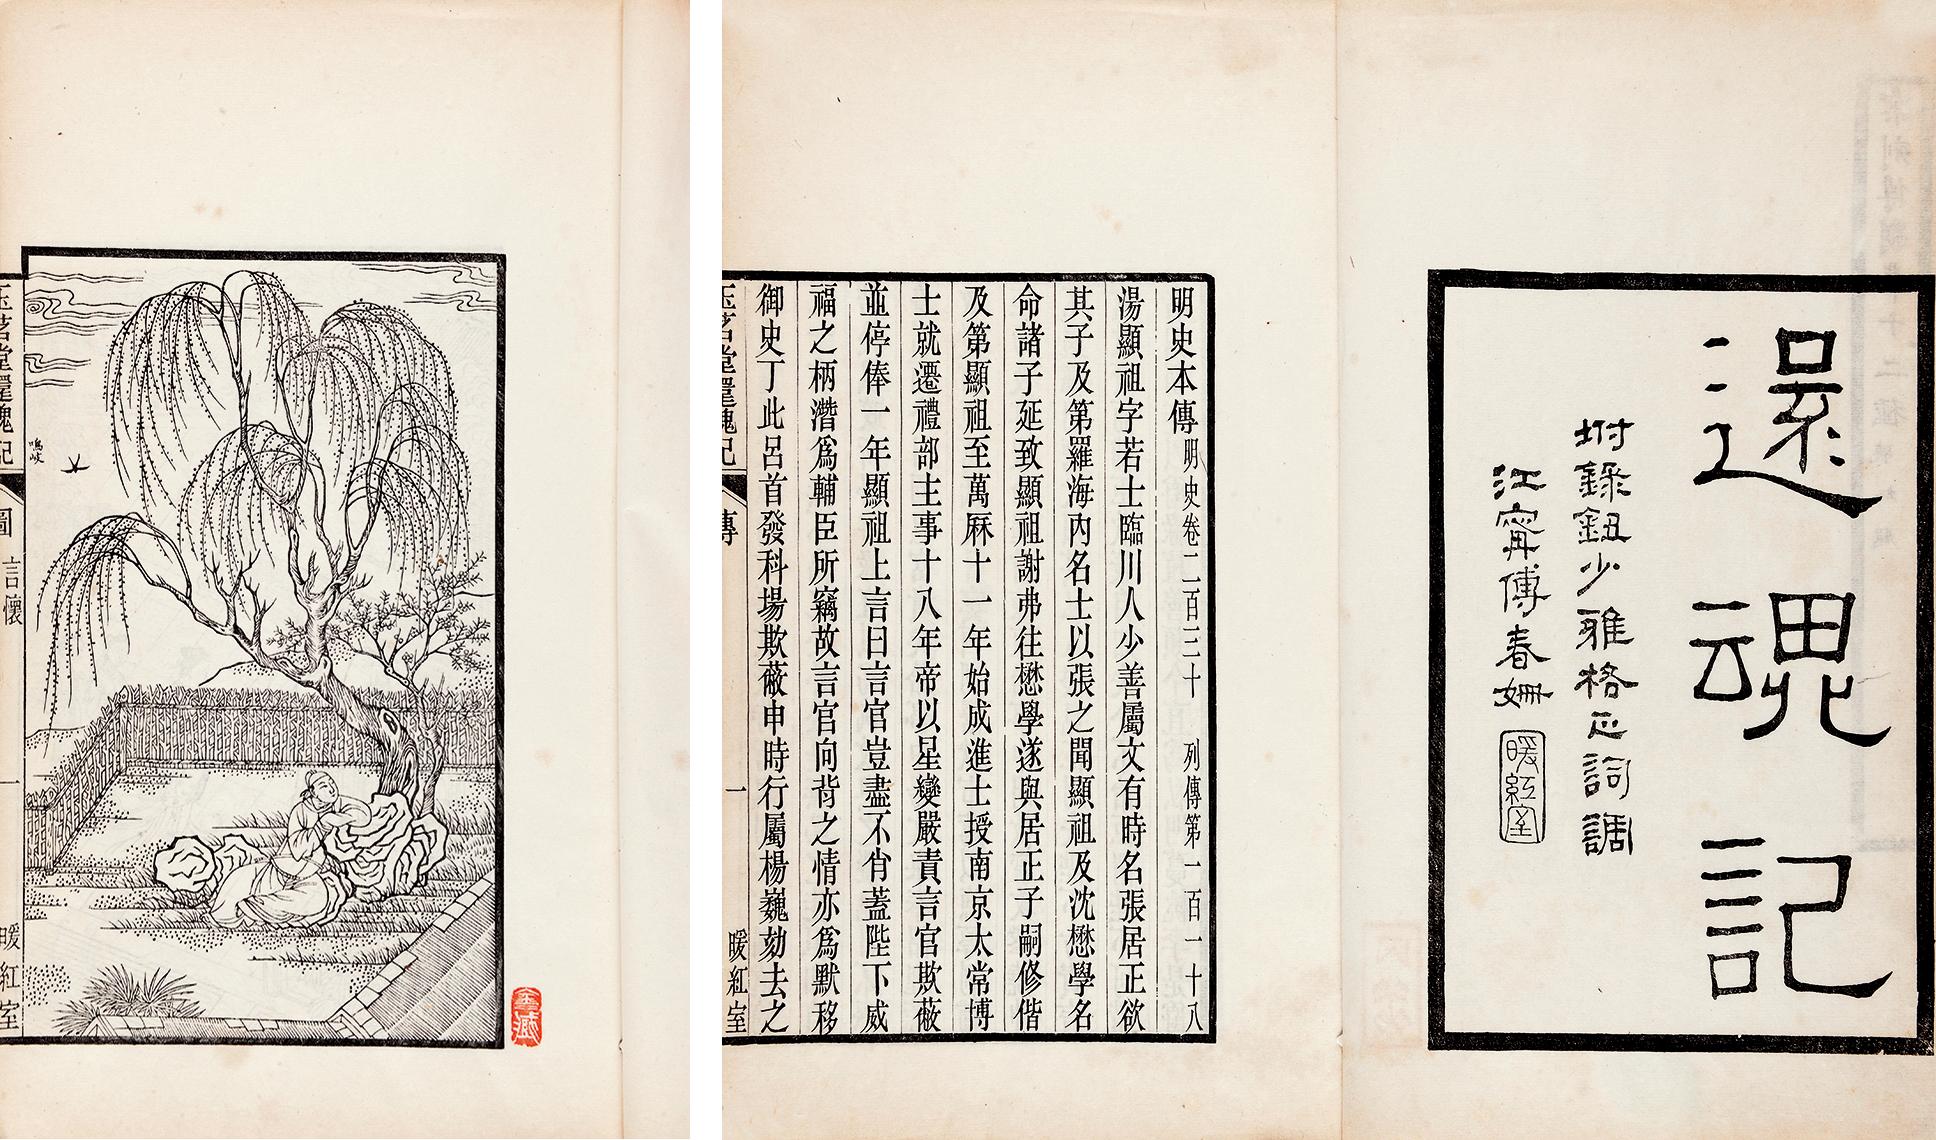 還魂記
坿錄鈕少雅格正詞調
江甯傅春姍
暖紅室
明史本傳 明史卷二百三十 列傳第一百一十八
湯顯祖字若士臨川人少善屬文有時名張居正欲
其子及第羅海內名士以張之聞顯祖及沈懋學名
命諸子延致顯祖謝弗往懋學遂與居正子嗣修偕
及第顯祖至萬厤十一年始成進士授南京太常博
士就遷禮部主事十八年帝以星變嚴責言官欺蔽
並停俸一年顯祖上言曰言官豈盡不肖蓋陛下威
福之柄潛爲輔臣所竊故言官向背之情亦爲默移
御史丁此呂首發科場欺蔽申時行屬楊巍劾去之
玉茗堂還魂記 傳 一 暖紅室
鳴岐
玉茗堂還魂記 圖 言懷 一 暖紅室